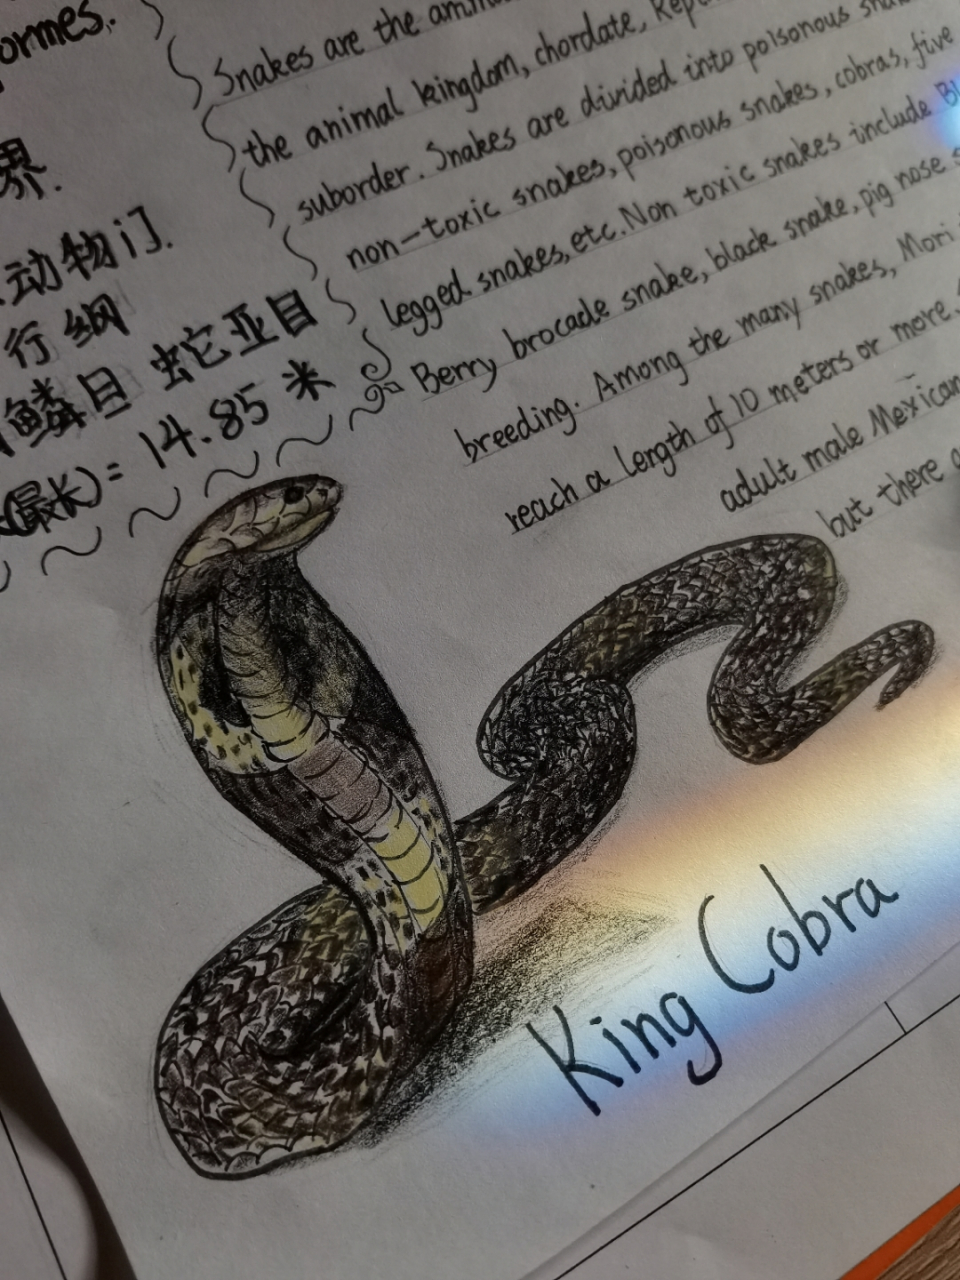 ormes.
界.
动物门.
行纲
鳞目 蛇亚目
(最长)= 14.85 米
Snakes are the
the animal kingdom, chordate,
suborder. Snakes are divided into poisonous
non-toxic snakes, poisonous snakes, cobras, five
legged snakes, etc. Non toxic snakes include
Berry brocade snake, black snake, pig nose
breeding. Among the many snakes, Mori
reach a length of 10 meters or more.
adult male Mexican
but there
King Cobra